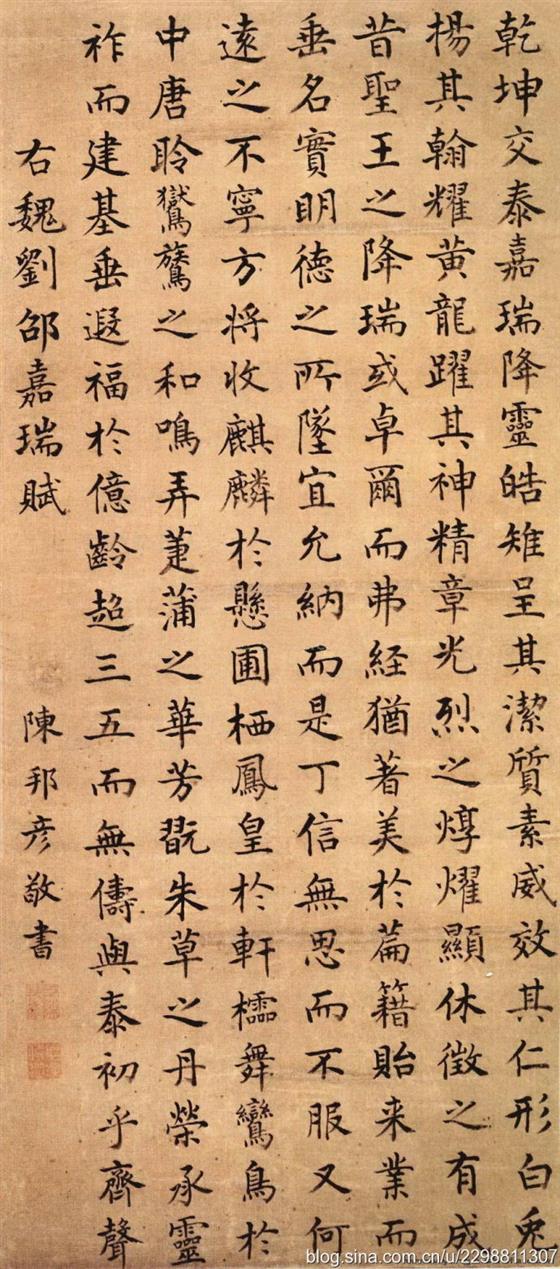 乾坤交泰嘉瑞降靈皓雉呈其潔質素威效其仁形白兎
揚其翰耀黃龍躍其神精章光烈之焞燿顯休徵之有成
昔聖王之降瑞或卓爾而弗経猶著美於篇籍貽来業而
垂名實明德之所墜宜允納而是丁信無思而不服又何
遠之不寧方将收麒麟於懸圃栖鳳皇於軒檽舞鸞鳥於
中唐聆鸑鷟之和鳴弄萐蒲之華芳翫朱草之丹榮承靈
祚而建基垂遐福於億齡超三五而無儔與泰初乎齊聲
右魏劉邵嘉瑞賦 陳邦彦敬書
blog.sina.com.cn/u/2298811307